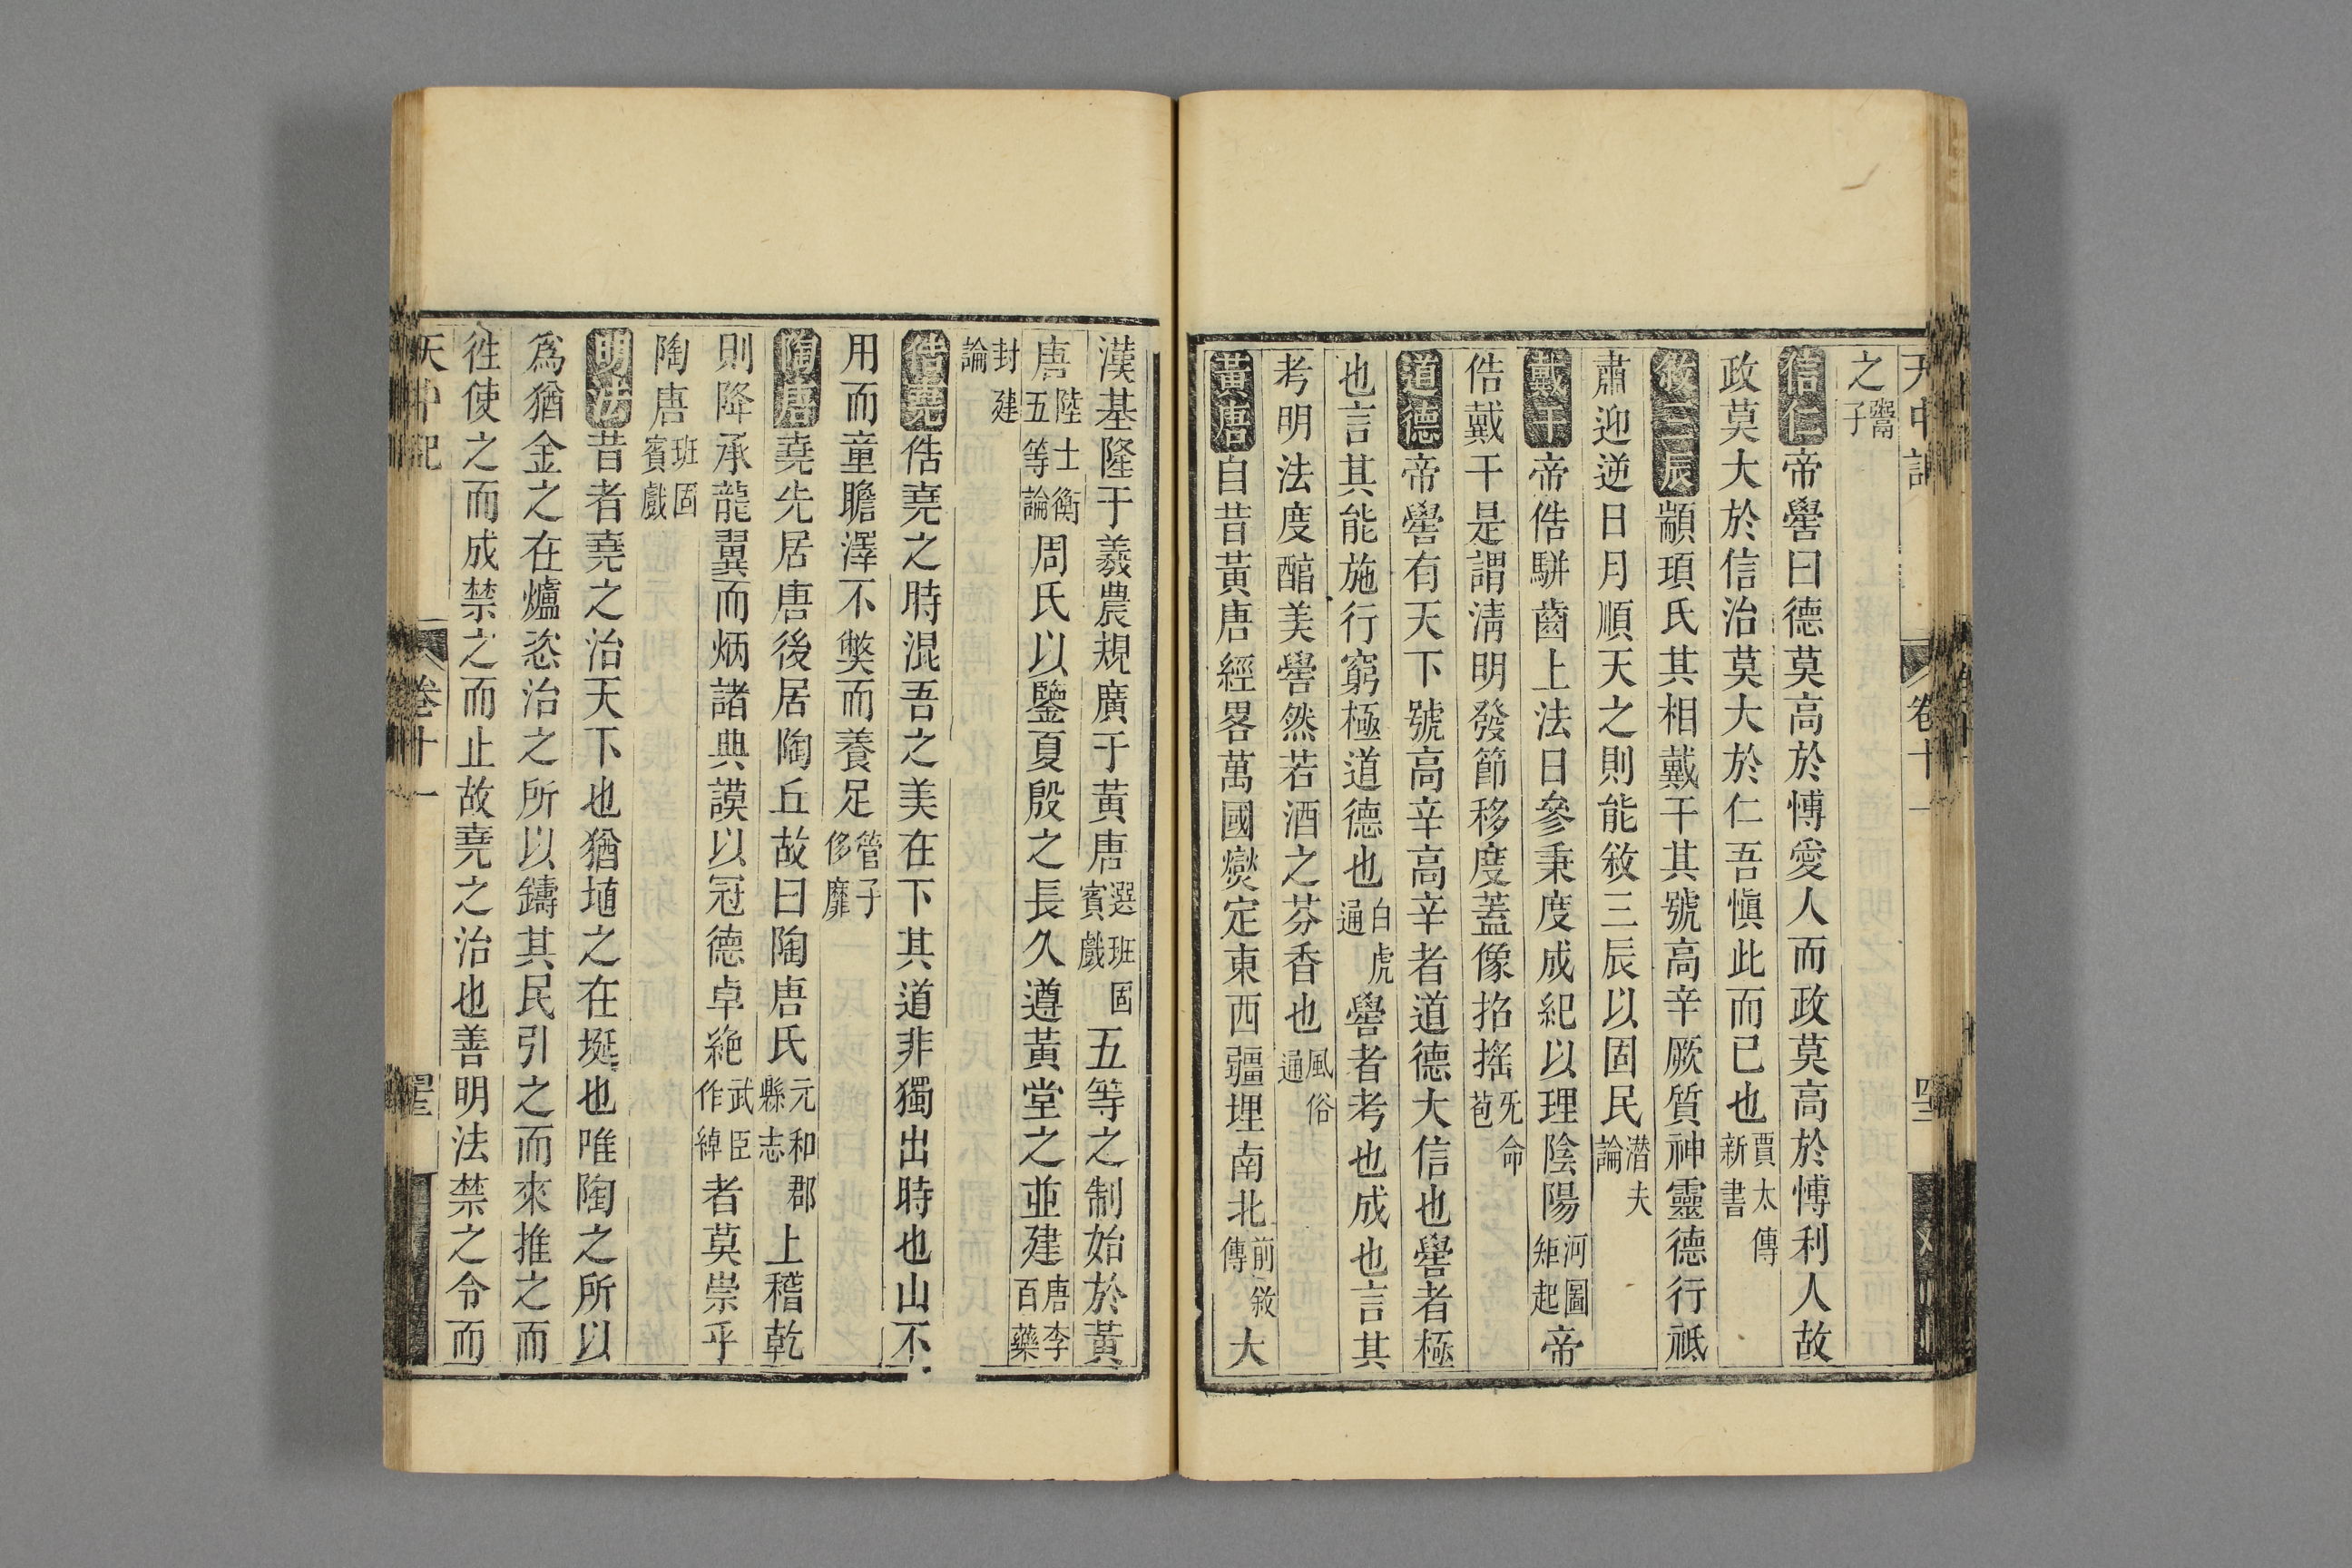 天中記 卷十一
之鬻子
信仁帝嚳曰德莫高於愽愛人而政莫高於愽利人故
政莫大於信治莫大於仁吾愼此而已也賈太傳新書
敘三辰顓頊氏其相戴干其號高辛厥質神靈德行祗
肅迎逆日月順天之則能敘三辰以固民潜夫論
戴干帝俈駢齒上法日參秉度成紀以理陰陽河圖矩起帝
俈戴干是謂淸明發節移度蓋像招搖旡命苞
道德帝嚳有天下號高辛高辛者道德大信也嚳者極
也言其能施行窮極道德也白虎通嚳者考也成也言其
考明法度醕美嚳然若酒之芬香也風俗通
黃唐自昔黃唐經畧萬國爕定東西疆埋南北前敘傳大
漢基隆于羲農規廣于黃唐選班固賓戲五等之制始於黃
唐陸士衡五等論周氏以鑒夏殷之長久遵黃堂之並建唐李百藥
封建論
俈堯俈堯之時混吾之美在下其道非獨出時也山不
用而童贍澤不獘而養足管子侈靡
陶唐堯先居唐後居陶丘故曰陶唐氏元和郡縣志上稽乾
則降承龍翼而炳諸典謨以冠德卓絶武臣作綽者莫崇乎
陶唐班固賓戲
明法昔者堯之治天下也猶埴之在埏也唯陶之所以
爲猶金之在爐恣治之所以鑄其民引之而來推之而
徃使之而成禁之而止故堯之治也善明法禁之令而
天中記 卷十一